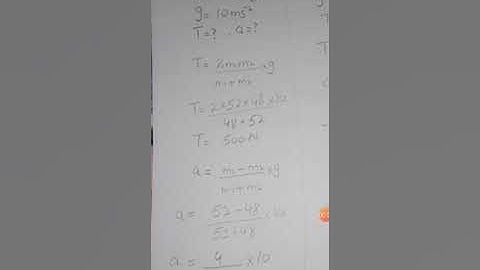 g = 10ms⁻²
T = ? , a = ?
T = 2m₁m₂ × g
m₁ + m₂
T = 2 × 52 × 48 × 10
48 + 52
T = 500 N
a = m₁ - m₂ × g
m₁ + m₂
a = 52 - 48 × 10
52 + 48
a = 4 × 10